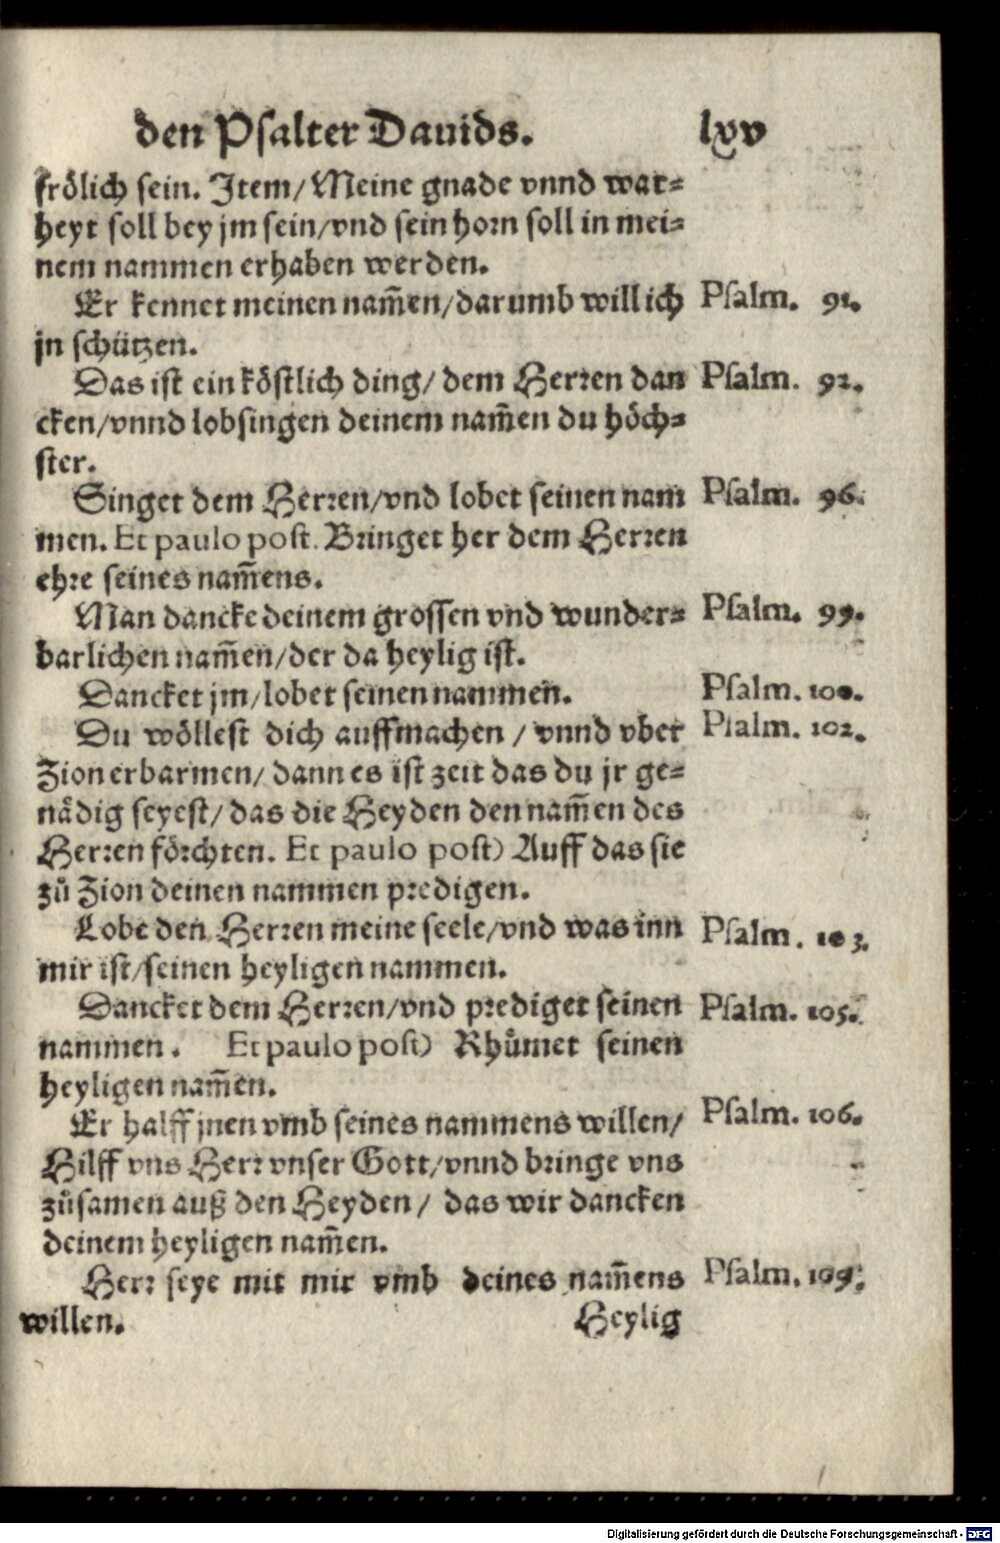 den Psalter Dauids. lxv
frölich sein. Item/Meine gnade vnnd war=
heyt soll bey jm sein/vnd sein horn soll in mei=
nem nammen erhaben werden.
Er kennet meinen nam̄en/darumb will ich Psalm. 91.
jn schützen.
Das ist ein köstlich ding/ dem Herren dan Psalm. 92.
cken/vnnd lobsingen deinem nam̄en du höch=
ster.
Singet dem Herren/vnd lobet seinen nam Psalm. 96.
men. Et paulo post. Bringet her dem Herren
ehre seines nam̄ens.
Man dancke deinem grossen vnd wunder= Psalm. 99.
barlichen nam̄en/der da heylig ist.
Dancket jm/lobet seinen nammen. Psalm. 100.
Du wöllest dich auffmachen / vnnd vber Psalm. 102.
Zion erbarmen/ dann es ist zeit das du jr ge=
nädig seyest/ das die Heyden den nam̄en des
Herren förchten. Et paulo post) Auff das sie
zů Zion deinen nammen predigen.
Lobe den Herren meine seele/vnd was inn Psalm. 103.
mir ist/seinen heyligen nammen.
Dancket dem Herren/vnd prediget seinen Psalm. 105.
nammen. Et paulo post) Rhůmet seinen
heyligen nam̄en.
Er halff jnen vmb seines nammens willen/ Psalm. 106.
Hilff vns Herr vnser Gott/vnnd bringe vns
zůsamen auß den Heyden/ das wir dancken
deinem heyligen nam̄en.
Herr seye mit mir vmb deines nam̄ens Psalm. 109.
willen. Heylig
Digitalisierung gefördert durch die Deutsche Forschungsgemeinschaft - DFG